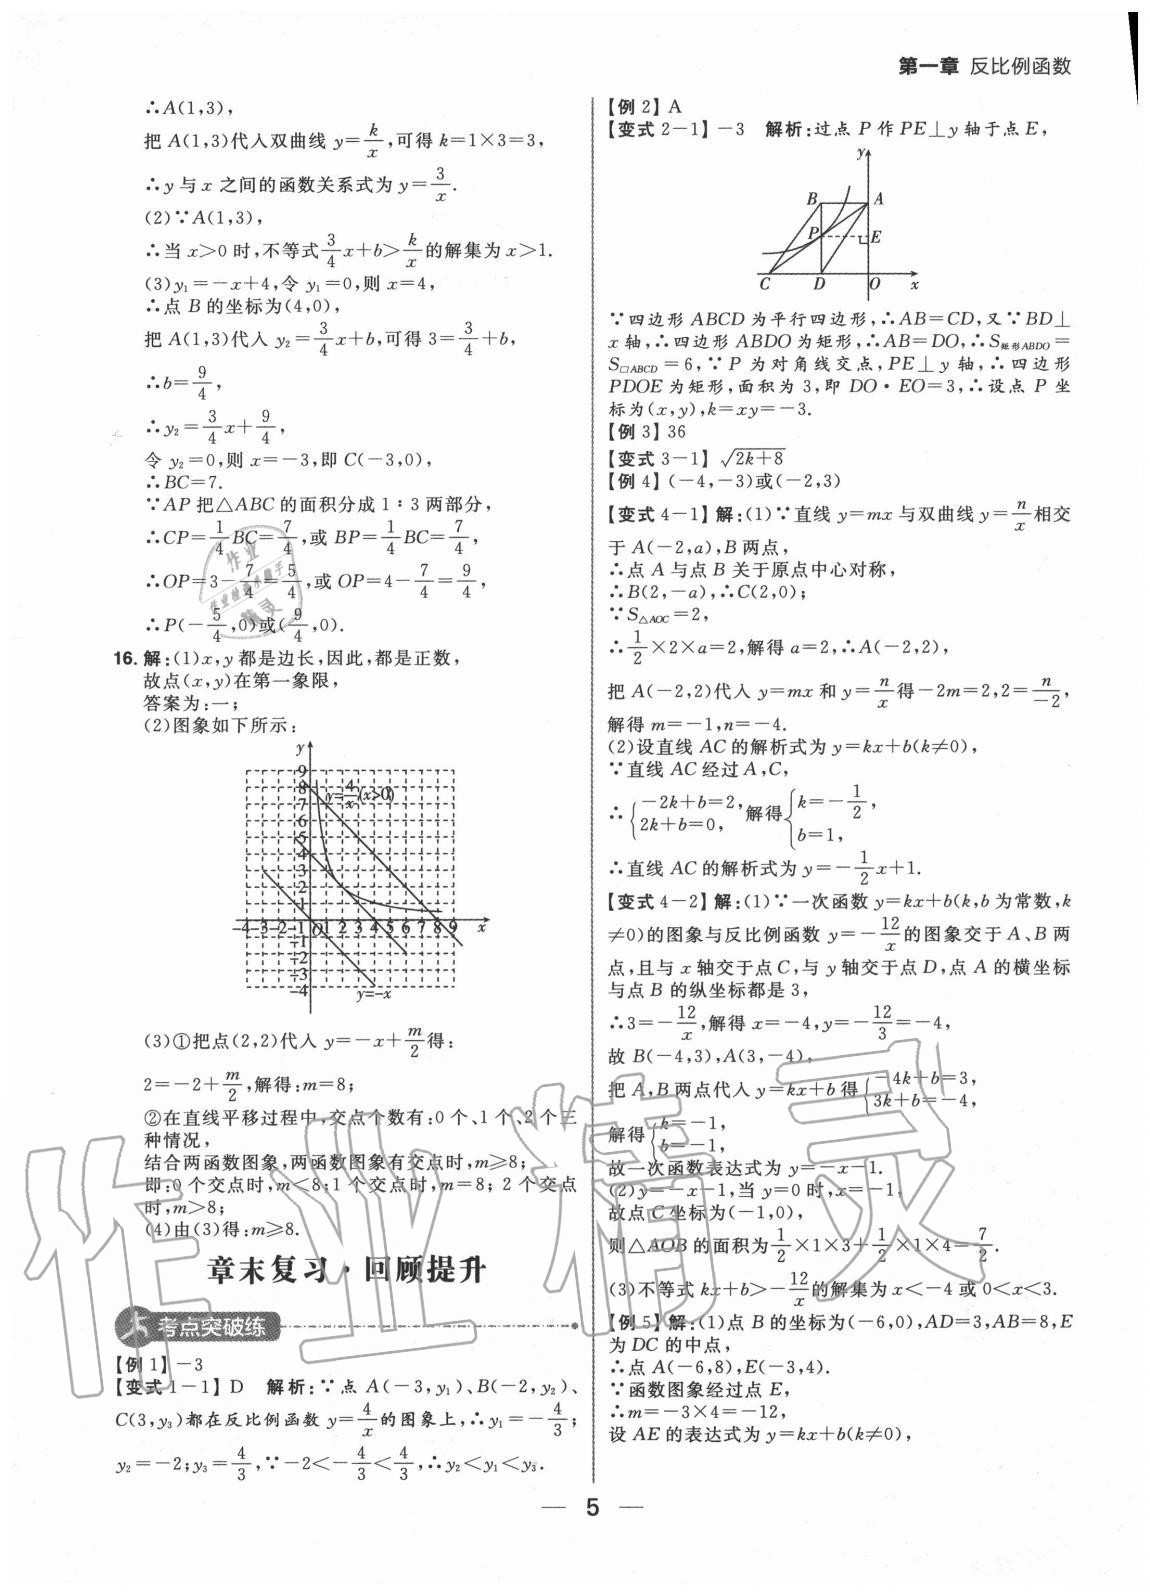 第一章 反比例函数
∴A(1,3),
把 A(1,3)代入双曲线 y=k/x,可得 k=1×3=3,
∴y 与 x 之间的函数关系式为 y=3/x.
(2)∵A(1,3),
∴当 x>0 时,不等式3/4x+b>k/x的解集为 x>1.
(3)y₁=-x+4,令 y₁=0,则 x=4,
∴点 B 的坐标为(4,0),
把 A(1,3)代入 y₂=3/4x+b,可得 3=3/4+b,
∴b=9/4,
∴y₂=3/4x+9/4,
令 y₂=0,则 x=-3,即 C(-3,0),
∴BC=7.
∵AP 把△ABC 的面积分成 1:3 两部分,
∴CP=1/4BC=7/4,或 BP=1/4BC=7/4,
∴OP=3-7/4=5/4,或 OP=4-7/4=9/4,
∴P(-5/4,0)或(9/4,0).
16.解:(1)x,y 都是边长,因此,都是正数,
故点(x,y)在第一象限,
答案为:一;
(2)图象如下所示:
y
9
8
7
6
5
4
3
2
1
y=4/x(x>0)
-4-3-2-1 O 1 2 3 4 5 6 7 8 9 x
-1
-2
-3
-4
y=-x
(3)①把点(2,2)代入 y=-x+m/2得:
2=-2+m/2,解得:m=8;
②在直线平移过程中,交点个数有:0 个、1 个、2 个三
种情况,
结合两函数图象,两函数图象有交点时,m≥8;
即:0 个交点时,m<8;1 个交点时,m=8; 2 个交点
时,m>8;
(4)由(3)得:m≥8.
章末复习·回顾提升
考点突破练
【例 1】-3
【变式 1-1】D 解析:∵点 A(-3,y₁)、B(-2,y₂)、
C(3,y₃)都在反比例函数 y=4/x的图象上,∴y₁=-4/3;
y₂=-2;y₃=4/3,∵-2<-4/3<4/3,∴y₂<y₁<y₃.
【例 2】A
【变式 2-1】-3 解析:过点 P 作 PE⊥y 轴于点 E,
y
B A
P E
C D O x
∵四边形 ABCD 为平行四边形,∴AB=CD,又∵BD⊥
x 轴,∴四边形 ABDO 为矩形,∴AB=DO,∴S矩形ABDO=
S□ABCD=6,∵P 为对角线交点,PE⊥y 轴,∴四边形
PDOE 为矩形,面积为 3,即 DO·EO=3,∴设点 P 坐
标为(x,y),k=xy=-3.
【例 3】36
【变式 3-1】√(2k+8)
【例 4】(-4,-3)或(-2,3)
【变式 4-1】解:(1)∵直线 y=mx 与双曲线 y=n/x相交
于 A(-2,a),B 两点,
∴点 A 与点 B 关于原点中心对称,
∴B(2,-a),∴C(2,0);
∵S△AOC=2,
∴1/2×2×a=2,解得 a=2,∴A(-2,2),
把 A(-2,2)代入 y=mx 和 y=n/x得-2m=2,2=n/-2,
解得 m=-1,n=-4.
(2)设直线 AC 的解析式为 y=kx+b(k≠0),
∵直线 AC 经过 A,C,
∴{-2k+b=2, 2k+b=0, 解得{k=-1/2, b=1,
∴直线 AC 的解析式为 y=-1/2x+1.
【变式 4-2】解:(1)∵一次函数 y=kx+b(k,b 为常数,k
≠0)的图象与反比例函数 y=-12/x的图象交于 A、B 两
点,且与 x 轴交于点 C,与 y 轴交于点 D,点 A 的横坐标
与点 B 的纵坐标都是 3,
∴3=-12/x,解得 x=-4,y=-12/3=-4,
故 B(-4,3),A(3,-4),
把 A,B 两点代入 y=kx+b 得{-4k+b=3, 3k+b=-4,
解得{k=-1, b=-1,
故一次函数表达式为 y=-x-1.
(2)y=-x-1,当 y=0 时,x=-1,
故点 C 坐标为(-1,0),
则△AOB 的面积为1/2×1×3+1/2×1×4=7/2.
(3)不等式 kx+b>-12/x的解集为 x<-4 或 0<x<3.
【例 5】解:(1)点 B 的坐标为(-6,0),AD=3,AB=8,E
为 DC 的中点,
∴点 A(-6,8),E(-3,4).
∵函数图象经过点 E,
∴m=-3×4=-12,
设 AE 的表达式为 y=kx+b(k≠0),
— 5 —
作业精灵